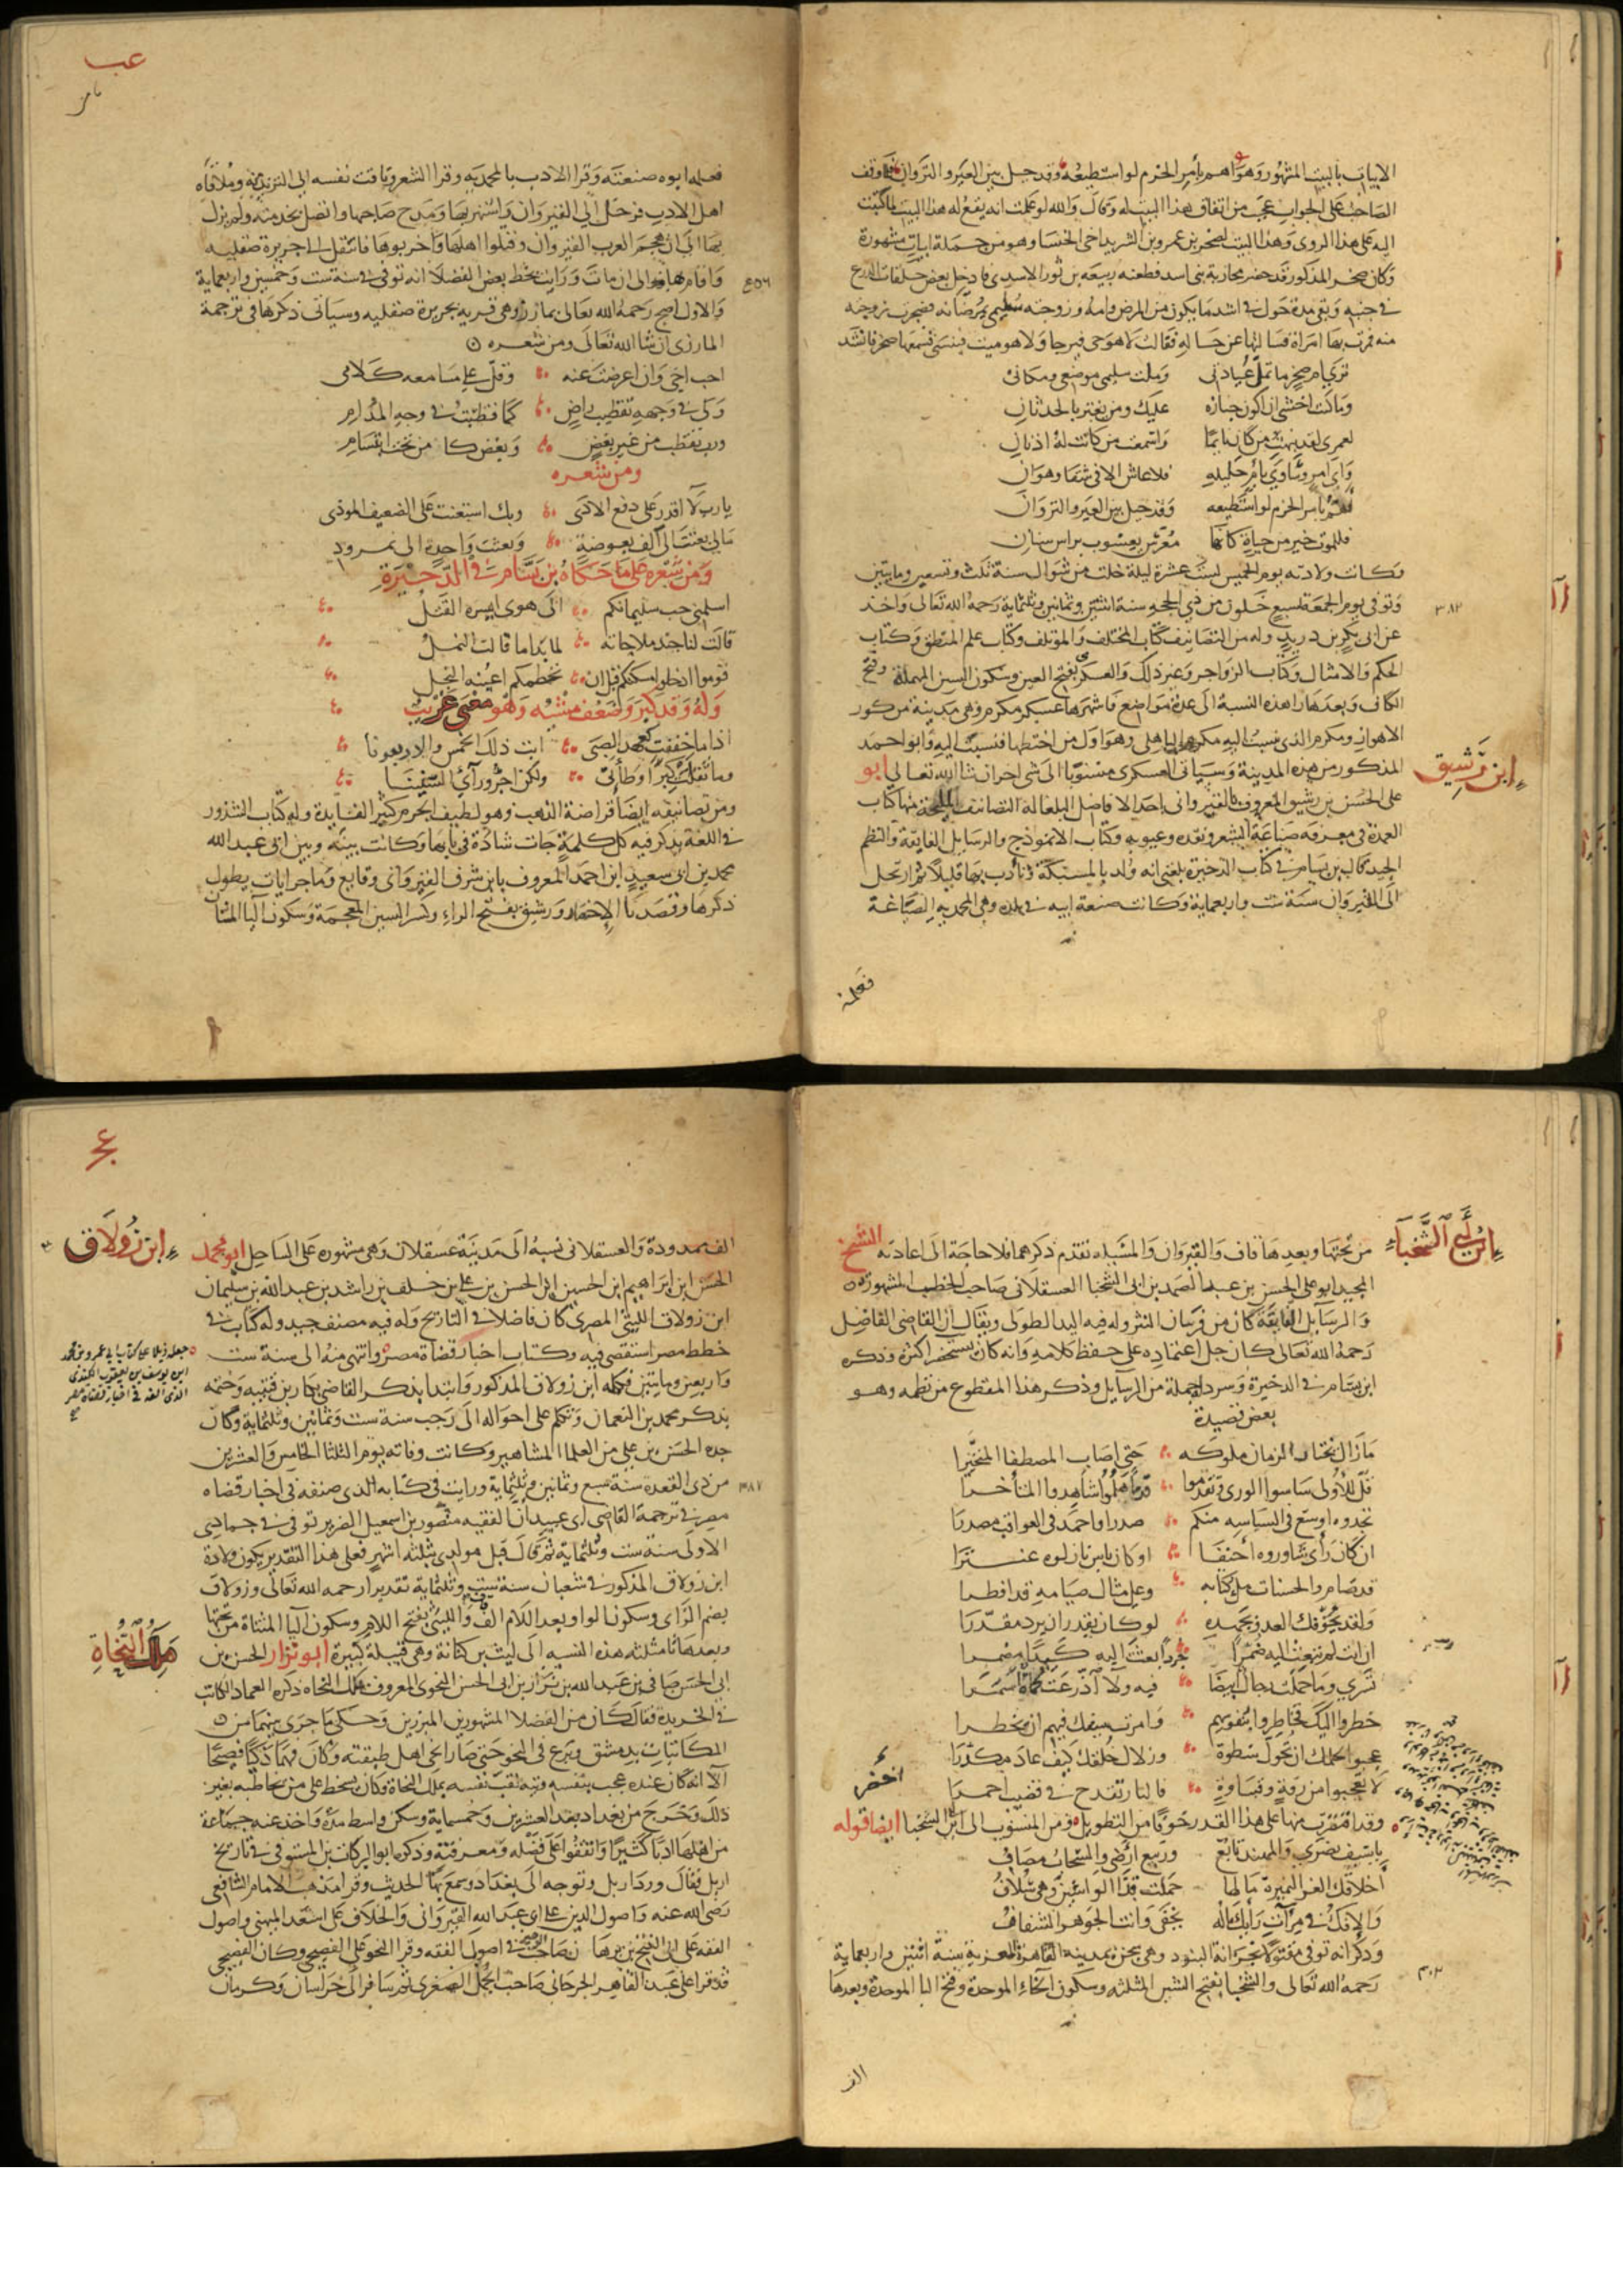 الابيات بالبيت المشهور وهو اهم بامر الحزم لو استطيعه وقد حيل بين العير والنزوان فلما وقف
الصاحب على الجواب عجب من اتفاق هذا البيت له وقال والله لو علمت انه يقع له هذا البيت لما كتبت
اليه على هذا الروي وهذا البيت لصخر بن عمرو بن الشريد اخي الخنسا وهو من جملة ابيات مشهورة
وكان صخر المذكور قد حضر محاربة بني اسد فطعنه ربيعه بن ثور الاسدي فادخل بعض حلقات الدرع
في جنبه وبقي مدة حول في اشد ما يكون من المرض وامه وزوجته سليمى يمرضانه فضجرت زوجته
منه فمرت بها امراة فسالتها عن حاله فقالت لا هو حي فيرجا ولا هو ميت فينسى فسمعها صخر فانشد
ارى ام صخر ما تمل عيادتي وملت سليمى موضعي ومكاني
وما كنت اخشى ان اكون جنازه عليك ومن يغتر بالحدثان
لعمري لقد نبهت من كان نائما واسمعت من كانت له اذنان
واي امرء ساوى بام حليله فلا عاش الا في شقا وهوان
اهم بامر الحزم لو استطيعه وقد حيل بين العير والنزوان
فللموت خير من حياة كانها معرس يعسوب براس سنان
وكانت ولادته يوم الخميس لست عشرة ليلة خلت من شوال سنة ثلث وتسعين ومايتين
وتوفي يوم الجمعة لسبع خلون من ذي الحجه سنة اثنتين وثمانين وثلثماية رحمه الله تعالى واخذ
٣٨٢
عن ابي بكر بن دريد وله من التصانيف كتاب المختلف والمؤتلف وكتاب علم المنطق وكتاب
الحكم والامثال وكتاب الزواجر وغير ذلك والعسكري بفتح العين وسكون السين المهملة وفتح
الكاف وبعدها را هذه النسبة الى عدة مواضع فاشهرها عسكر مكرم وهي مدينة من كور
الاهواز ومكرم الذي نسبت اليه مكرم الباهلي وهو اول من اختطها فنسبت اليه وابو احمد
المذكور من هذه المدينة وسياتي العسكري منسوبا الى شي اخر ان شا الله تعالى ابو
ابن رشيق
على الحسن بن رشيق المعروف بالقيرواني احد الافاضل البلغا له التصانيف المليحة منها كتاب
العمدة في معرفة صناعة الشعر ونقده وعيوبه وكتاب الانموذج والرسايل الفايقة والنظم
الجيد قال ابن بسام في كتاب الذخيرة بلغني انه ولد بالمسيلة وتأدب بها قليلا ثم ارتحل
الى القيروان سنة ست واربعماية وكانت صنعة ابيه في بلده وهي المحمديه الصياغة
فعلمه
عب
فعلمه ابوه صنعته وقرا الادب بالمحمديه وقرا الشعر وتاقت نفسه الى التزيد منه وملاقاه
اهل الادب فرحل الى القيروان واشتهر بها ومدح صاحبها واتصل بخدمته ولم يزل
بها الى ان هجم العرب القيروان وقتلوا اهلها واخربوها فانتقل الى جزيرة صقليه
واقام بها الى ان مات ورايت بخط بعض الفضلا انه توفي في سنة ست وخمسين واربعماية
٤٥٦
والاول اصح رحمه الله تعالى بمازر وهي قريه بجزيرة صقليه وسياتي ذكرها في ترجمة
المازري ان شا الله تعالى ومن شعره
احب اخي وان اعرضت عنه وقل على مسامعه كلامي
ولي في وجهه تقطيب راض كما قطبت في وجه المدام
ورب تقطب من غير بغض وبغض كامن تحت ابتسام
ومن شعره
يا رب لا اقدر على دفع الاذى وبك استعنت على الضعيف الموذي
مالي بعثت الي الف بعوضة وبعثت واحدة الى نمرود
ومن شعره على ما حكاه بن بسام في الذخيرة
اسلمني حب سليمانكم الى هوى ايسره القتل
قالت لنا جند ملاحاته لما بدا ما قالت النمل
قوموا ادخلوا مسكنكم قبل ان تحطمكم اعينه النجل
وله وقد كبر وضعف مشيه وهو معنى غريب
اذا ما خففت كعهد الصبى ابت ذلك الخمس والاربعونا
وما ثقلت كبرا وطأتي ولكن اجر ورآئي السنينا
ومن تصانيفه ايضا قراضة الذهب وهو لطيف الجرم كثير الفايدة وله كتاب الشذور
في اللغة يذكر فيه كل كلمة جات شاذة في بابها وكانت بينه وبين ابي عبد الله
محمد بن ابي سعيد ابن احمد المعروف بابن شرف القيرواني وقايع وماجرايات يطول
ذكرها وقصدنا الاختصار ورشيق بفتح الراء وكسر الشين المعجمة وسكون اليا المثناة
ابن ابي الشخباء
من تحتها وبعدها قاف والقيروان والمسيله تقدم ذكرهما فلا حاجة الى اعادته الشيخ
المجيد ابو علي الحسن بن عبد الصمد بن ابي الشخبا العسقلاني صاحب الخطب المشهورة
والرسآيل الفايقة كان من فرسان النثر وله فيه اليد الطولى ويقال ان القاضي الفاضل
رحمه الله تعالى كان جل اعتماده على حفظ كلامه وانه كان يستحضر اكثره وذكره
ابن بسام في الذخيرة وسرد له جملة من الرسآيل وذكر هذا المقطوع من نظمه وهو
بعض قصيدة
ما زال يختار الزمان ملوكه حتى اصاب المصطفا المتخيرا
قل للأولى ساسوا الورى وتقدموا قدما هلموا شاهدوا المتأخرا
تجدوه اوسع في السياسه منكم صدرا واحمد في العواقب مصدرا
ان كان رأى شاوروه أحنفا او كان باس نازلوه عنترا
قد صام والحسنات ملء كتابه وعلى مثال صيامه قد افطرا
ولقد تخوفك العدو بجهده لو كان يقدر ان يرد مقدرا
ان انت لم تبعث اليه ضمرا جردا بعثت اليه كيدا مضمرا
تسري وما حملت رجال ابيضا فيه ولا آدرعت كماة اسمرا
خطروا اليك فخاطروا بنفوسهم وامرت سيفك فيهم ان يخطرا
عجبوا لحلمك ان تحول سطوة وزلال خلقك كيف عاد مكدرا
لا تعجبوا من رقة وقساوة فالنار تقدح في قضيب اخضرا
وقد اقتصرت منها على هذا القدر خوفا من التطويل ومن المنسوب الى ابن ابي الشخبا ايضا قوله
يا سيف نصري والمهند تابع وربيع ارضي والسحاب مصاف
أخلاقك الغر النميرة ما لها حملت قذا الواشين وهي سلاف
والافك في مرآت رأيك ماله يخفى وانت الجوهر الشفاف
وذكر انه توفي مقتولا بخزانة البنود وهي سجن بمدينه القاهرة المعزية سنة اثنتين واربعماية
رحمه الله تعالى والشخبا بفتح الشين المثلثه وسكون الخاء الموحدة وفتح البا الموحدة وبعدها
الف
ابن زولاق
الف ممدودة والعسقلاني نسبه الى مدينة عسقلان وهي مشهوره على الساحل ابو محمد
الحسن ابن ابراهيم ابن الحسين ابن الحسن بن علي بن خلف بن راشد بن عبد الله بن سليمان
ابن زولاق الليثي المصري كان فاضلا في التاريخ وله فيه مصنف جيد وله كتاب في
خطط مصر استقصى فيه وكتاب اخبار قضاة مصر وانتهى منه الى سنة ست
جعله ذيلا على كتاب ابي عمرو محمد
ابن يوسف بن يعقوب الكندي
الذي الفه في اخبار قضاة مصر
واربعين ومايتين فكمله ابن زولاق المذكور وابتدا بذكر القاضي بكار بن قتيبه وختمه
بذكر محمد بن النعمان وتكلم على احواله الى رجب سنة ست وثمانين وثلثماية وكان
جده الحسن بن علي من العلما المشاهير وكانت وفاته يوم الثلثا الخامس والعشرين
من ذي القعدة سنة سبع وثمانين وثلثماية ورايت في كتابه الذي صنفه في اخبار قضاه
٣٨٧
مصر في ترجمة القاضي ابي عبيد ان الفقيه منصور بن اسمعيل الضرير توفي في جمادى
الاولى سنة ست وثلثماية ثم قال قبل مولدي بثلثه اشهر فعلى هذا التقدير يكون ولادة
ابن زولاق المذكور في شعبان سنة ست وثلثماية تقديرا رحمه الله تعالى وزولاق
بضم الزاى وسكون الواو وبعد اللام الف والليثي بفتح اللام وسكون اليا المثناة من تحتها
وبعدها ثا مثلثه هذه النسبه الى ليث بن كنانة وهي قبيلة كبيرة ابو نزار الحسن بن
ملك النحاة
ابي الحسن صافي بن عبد الله بن نزار بن ابي الحسن النحوي المعروف بملك النحاه ذكره العماد الكاتب
في الخريدة فقال كان من الفضلا المشهورين المبرزين وحكى ما جرى بينهما من
المكاتبات بدمشق وبرع في النحو حتى صار انحى اهل طبقته وكان فهما ذكيا فصيحا
الا انه كان عنده عجب بنفسه وتيه لقب نفسه بملك النحاة وكان يسخط على من يخاطبه بغير
ذلك وخرج من بغداد بعد العشرين وخمسماية وسكن واسط مدة واخذ عنه جماعة
من اهلها ادبا كثيرا واتفقوا على فضله ومعرفته وذكره ابو البركات بن المستوفي في تاريخ
اربل فقال ورد اربل وتوجه الى بغداد وسمع بها الحديث وقرا مذهب الامام الشافعي
رضي الله عنه واصول الدين على ابي عبد الله القيرواني والخلاف على اسعد الميهني واصول
الفقه على ابي الفتح بن برهان صاحب الوجيز في اصول الفقه وقرا النحو على الفصيحي وكان الفصيحي
قد قرا على عبد القاهر الجرجاني صاحب الجمل الصغرى ثم سافر الى خراسان وكرمان